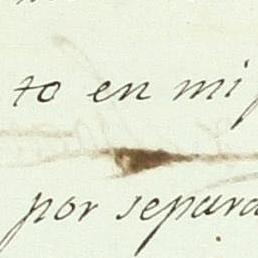 to en mi
por separa